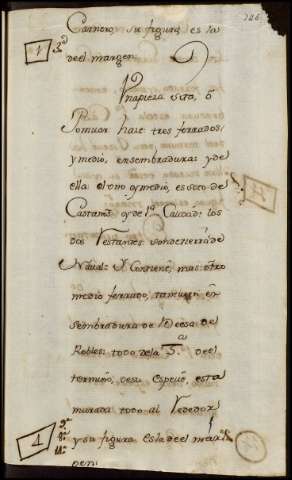 Carnero su figura es la
del margen:
Una pieza soto, ô
Pomar haze tres ferrados
y medio, en sembradura: y de
ella el uno y medio, es soto de
Castaños, y de 1ª Calidad: los
dos restantes son de tierra de
Naval: Y Contiene, mas otro
medio ferrado, tamuien en
sembradura de Deesa de
Robles: todo de la 3.ª del
termino, de su especie, esta
murada todo al Rededor
y su figura es la del mar
gen: